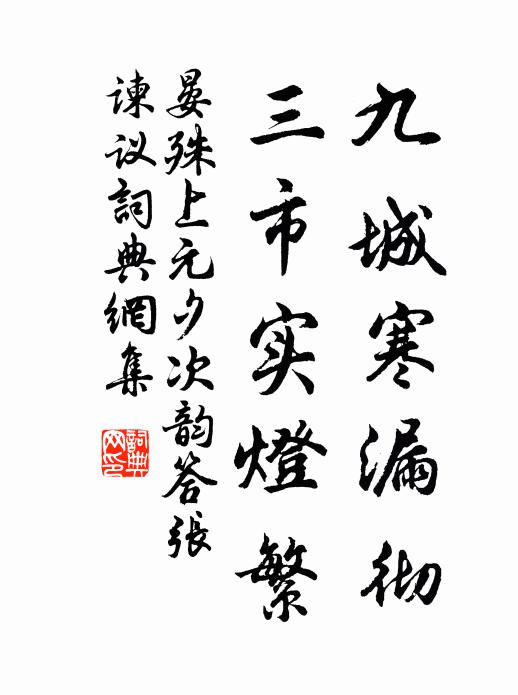 九城寒漏彻
三市实燈繁
晏殊上元夕次韵答張
谏议詞典網集
詞典网印